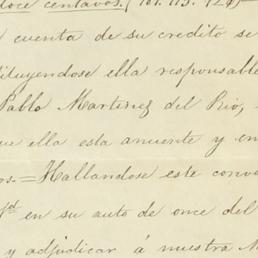 doce centavos. (
cuenta de su credito se
tituyendose ella responsable
Pablo Martinez del Rio,
que ella esta anuente y en
os. = Hallandose este conve
en su auto de once del
y adjudicar á nuestra M